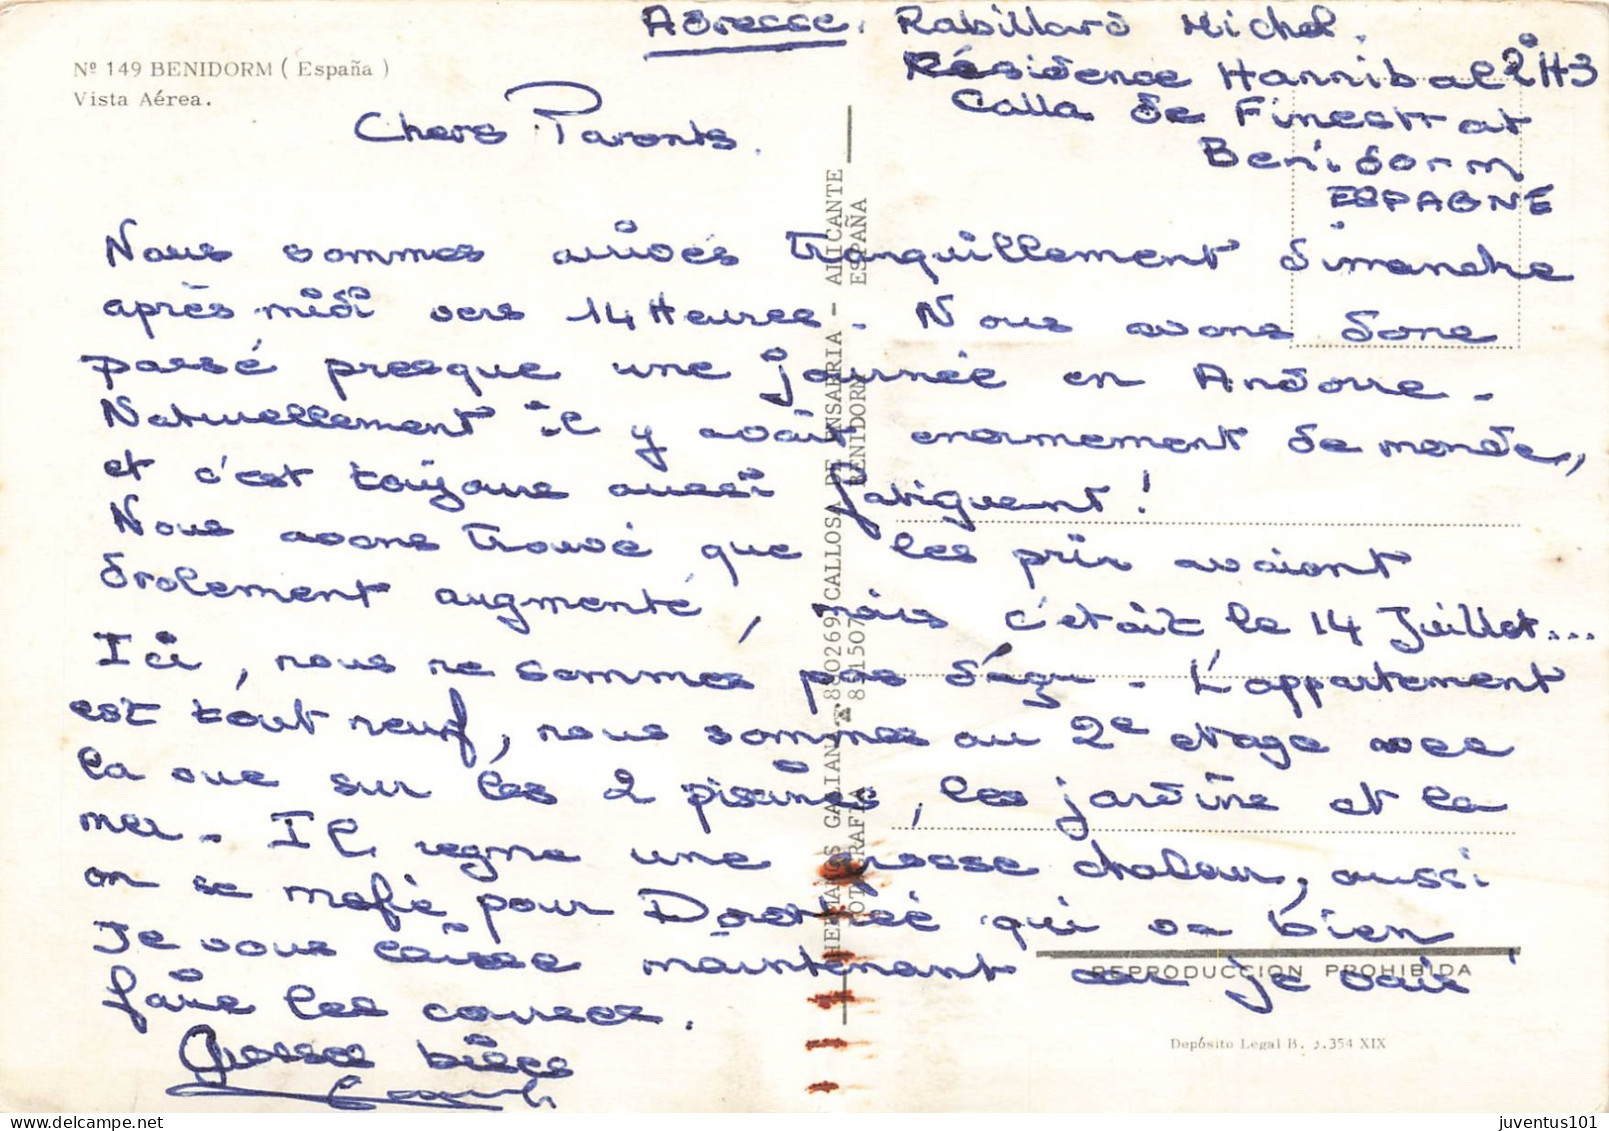 Nº 149 BENIDORM ( España )
Vista Aérea.
Adresse. Rabillard Michel.
Résidence Hannibal 2°H3
Calla de Finestrat
Benidorm
ESPAGNE
Chers Parents.
Nous sommes arrivés tranquillement dimanche
après midi vers 14 Heures. Nous avons donc
passé presque une journée en Andorre.
Naturellement il y avait enormement de monde,
et c'est toujours aussi fatiguant !
Nous avons trouvé que les prix avaient
drolement augmenté, mais c'était le 14 Juillet...
Ici, nous ne sommes pas déçu. L'appartement
est tout neuf, nous sommes au 2e etage avec
la vue sur les 2 piscines, les jardins et la
mer. Il regne une grosse chaleur, aussi
on se mefie pour Dorothée qui va bien
Je vous laisse maintenant car je vais
faire les courses.
Grosses bises
HERMANOS GALIANA 880269 CALLOSA DE ENSARRIA - ALICANTE
FOTOGRAFIA 851507 BENIDORM ESPAÑA
REPRODUCCION PROHIBIDA
Depósito Legal B. .354 XIX
juventus101